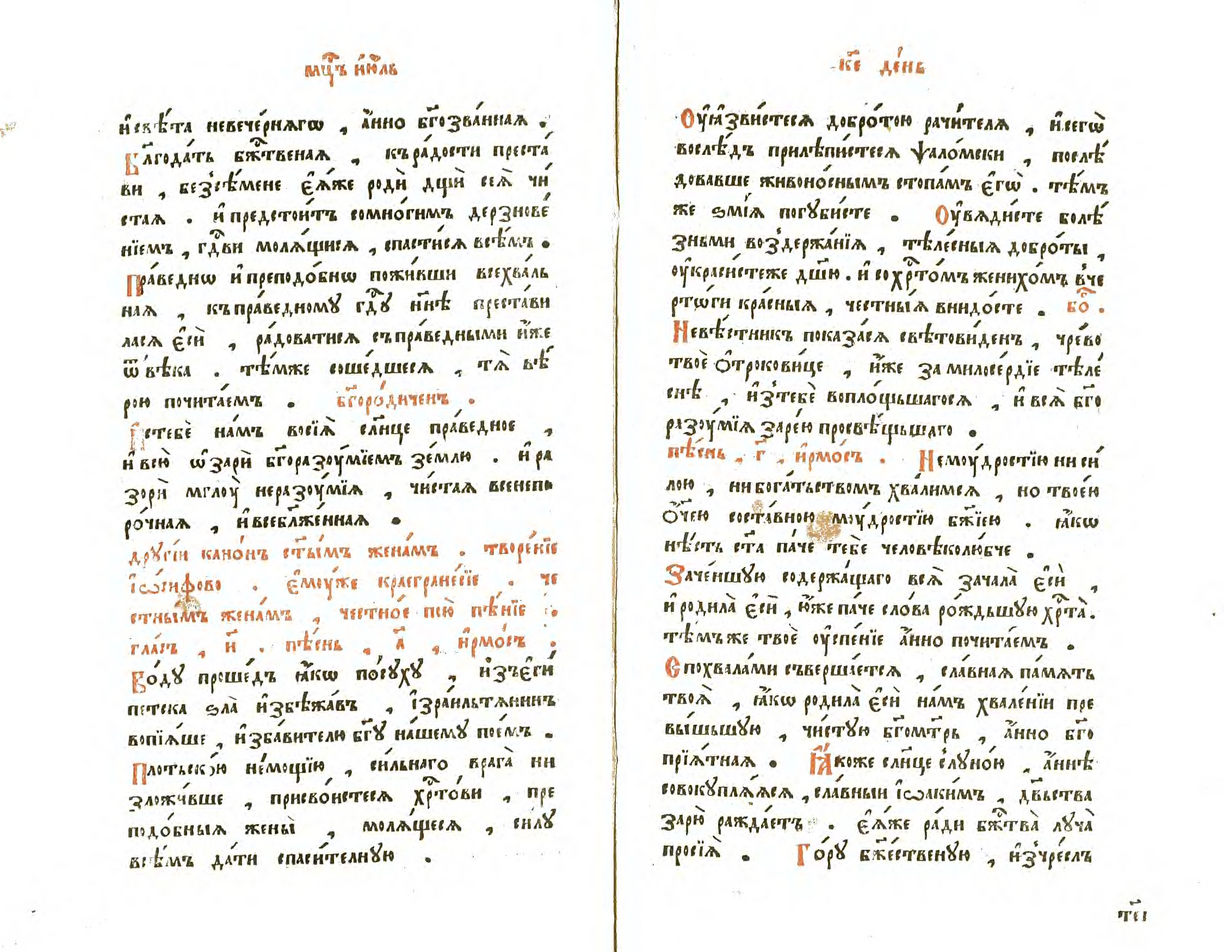 мц҃ъ і҆ю́ль
и҆свѣ́та невече́рнягѡ , а҆́нно бг҃озва́нная .
Бл҃года́ть бж҃твеная , къра́дости преста́
ви , без̾сѣ́мене є҆ѧ́же родѝ дщи сеѧ̀ чи́
стаѧ . и҆ предстои́тъ сомно́гимъ дерзнове́
нїемъ , гд҃ви молѧ́щисѧ , спасти́сѧ всѣ́мъ .
Пра́веднѡ и҆ преподо́бнѡ пожи́вши всехва́ль
наѧ , къпра́ведному гд҃ꙋ нн҃ѣ преста́ви
ласѧ є҆сѝ , ра́доватисѧ съпра́ведными и҆́же
ѿвѣ́ка . тѣ́мже соше́дшесѧ , тѧ̀ вѣ́
рою почита́емъ . бг҃оро́диченъ .
И҆стебѐ на́мъ восїѧ̀ сл҃нце пра́ведное ,
и҆ всю̀ ѡ҆зарѝ бг҃оразꙋ́мїемъ зе́млю . и҆ ра
зорѝ мглоу̀ неразоу́мїѧ , чи́стаѧ всенепо
ро́чнаѧ , и҆ всебл҃же́ннаѧ .
дрꙋгі́и кано́нъ ст҃ы́мъ жена́мъ . творе́нїе
і҆ѡ́сифово . є҆моу́же краегранесїе . че
стны́мъ жена́мъ , че́стно́е пою̀ пѣ́нїе .
гла́съ , и҃ . пѣ́снь , а҃ , і҆рмо́съ .
Во́дꙋ проше́дъ ꙗ҆́кѡ по́сꙋхꙋ , и҆зъе҆ги́
петска ѕла̀ и҆збѣжа́въ , і҆зра́ильтѧнинъ
вопїѧ́ше , и҆зба́вителю бг҃ꙋ на́шемꙋ пое́мъ .
Пло́тьскою не́мощїю , си́льнаго врага̀ ни
зложи́вше , присво́истесѧ хр҃то́ви , пре
подо́бныѧ жены̀ , молѧ́щесѧ , си́лꙋ
всѣ́мъ да́ти спаси́тельнꙋю .
к҃е де́нь
Оу҆ѧзви́стесѧ добро́тою рачи́телѧ , и҆сегѡ̀
вослѣ́дъ прилѣпи́стесѧ ѱало́мски , послѣ́
довавше живоно́снымъ стопа́мъ є҆гѡ̀ . тѣ́мъ
же ѕмі́ѧ погꙋби́сте . Оу҆вѧди́сте болѣ́
зньми воз̾держа́нїѧ , тѣле́сныѧ добро́ты ,
оу҆краси́стеже дш҃ꙋ . и҆ сохр҃то́мъ женихо́мъ вче
рто́ги кра́сныѧ , че́стныѧ внидо́сте . бо҃ .
Невѣ́стникъ показа́сѧ свѣтови́денъ , чре́во
твоѐ ѻ҆трокови́це , и҆́же за милосе́рдїе тѣле́
снѣ , и҆зтебѐ вопло́щьшагосѧ , и҆ всѧ̀ бг҃о
разоу́мїѧ заре́ю просвѣ́щьшаго .
пѣ́снь , г҃ , і҆рмо́съ . Немоу́дростїю ни си́
лою , ни бога́тьствомъ хва́лимсѧ , но твое́ю
ѻ҆́чею соста́вною моу́дростїю бж҃їею . ꙗ҆́кѡ
нѣ́сть ст҃а па́че тебѐ человѣколю́бче .
Заче́ншꙋю содержа́щаго всѧ̀ зачала̀ є҆сѝ ,
и҆ родила̀ є҆сѝ , ю҆́же па́че сло́ва ро́ждьшꙋю хр҃та̀ .
тѣ́мъже твоѐ оу҆спе́нїе а҆́нно почита́емъ .
Спохвала́ми съверша́етсѧ , сла́внаѧ па́мѧть
твоѧ̀ , ꙗ҆́кѡ родила̀ є҆сѝ на́мъ хвале́нїи пре
вы́шьшꙋю , чи́стꙋю бг҃ом҃трь , а҆́нно бг҃о
прїѧ́тнаѧ . Ꙗ҆́коже сл҃нце слꙋно́ю , а҆́ннѣ
совокꙋплѧ́ѧсѧ , сла́вныи і҆ѡаки́мъ , дв҃ьства
зарю̀ ражда́етъ . є҆ѧ́же ра́ди бж҃тва̀ лꙋча̀
просїѧ̀ . Го́рꙋ бж҃е́ственꙋю , и҆з̾чре́слъ